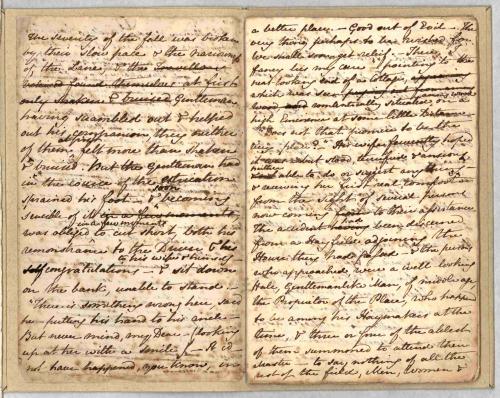 the severity of the fall was broken
by their slow pace & the narrowness
of the Lane; & the
found themselves at first
only shaken & bruised. Gentleman
having scrambled out & helped
out his companion, they neither
of them at first felt more than shaken
& bruised. But the Gentleman had
in the course of the extrication
sprained his foot & becoming soon
sensible of it
in a few moments
was obliged to cut short, both his
remonstrance to the Driver & his
congratulations to his wife & himself
& sit down
on the bank, unable to stand.
"There is something wrong here, said
he putting his hand to his ancle
But never mind, my Dear (looking
up at her with a smile) It cd
not have happened, you know, in
a better place. Good out of Evil. The
very thing perhaps to be wished for.
We shall soon get relief. There, I
fancy lies my cure" pointing to the
neat-looking end of a Cottage,
which was seen
wood romantically situated on a
high Eminence at some little Distance
"Does not that promise to be the
very place?" His wife fervently hoped
it was but stood, terrified & anxious
neither able to do or suggest anything
& receiving her first real comfort
from the sight of several persons
now coming to their assistance
The accident had been discerned
from a Hayfield adjoining the
House they had passed & the persons
who approached, were a well-looking
Hale, Gentlemanlike Man, of middle age
the Proprietor of the Place, who happened
to be among his Haymakers at the
time, & three or four of the ablest
of them summoned to attend their
Master to say nothing of all the
rest of the field, Men, Women &